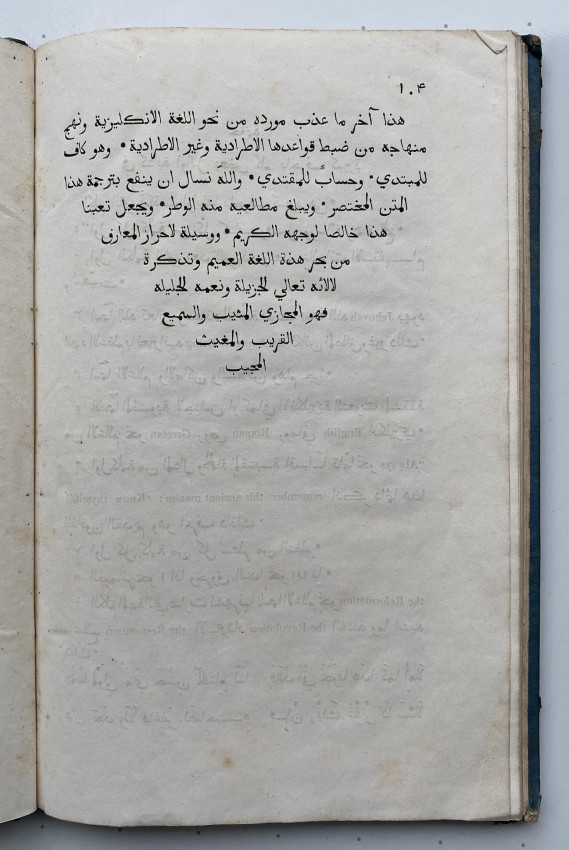 ١٠٤
هذا آخر ما عذب مورده من نحو اللغة الانكليزية ونهج
منهاجه من ضبط قواعدها الاطرادية وغير الاطرادية • وهو كاف
للمبتدي • وحسابٌ للمقتدي • والله نسال ان ينفع بترجمة هذا
المتن المختصر • ويبلغ مطالعيه منه الوطر • ويجعل تعبنا
هذا خالصا لوجهه الكريم • ووسيلة لاحراز المعارق
من بحر هذة اللغة العميم وتذكرة
لالائه تعالي الجزيلة ونعمه الجليله
فهو المجازي المثيب والسميع
القريب والمغيث
المجيب